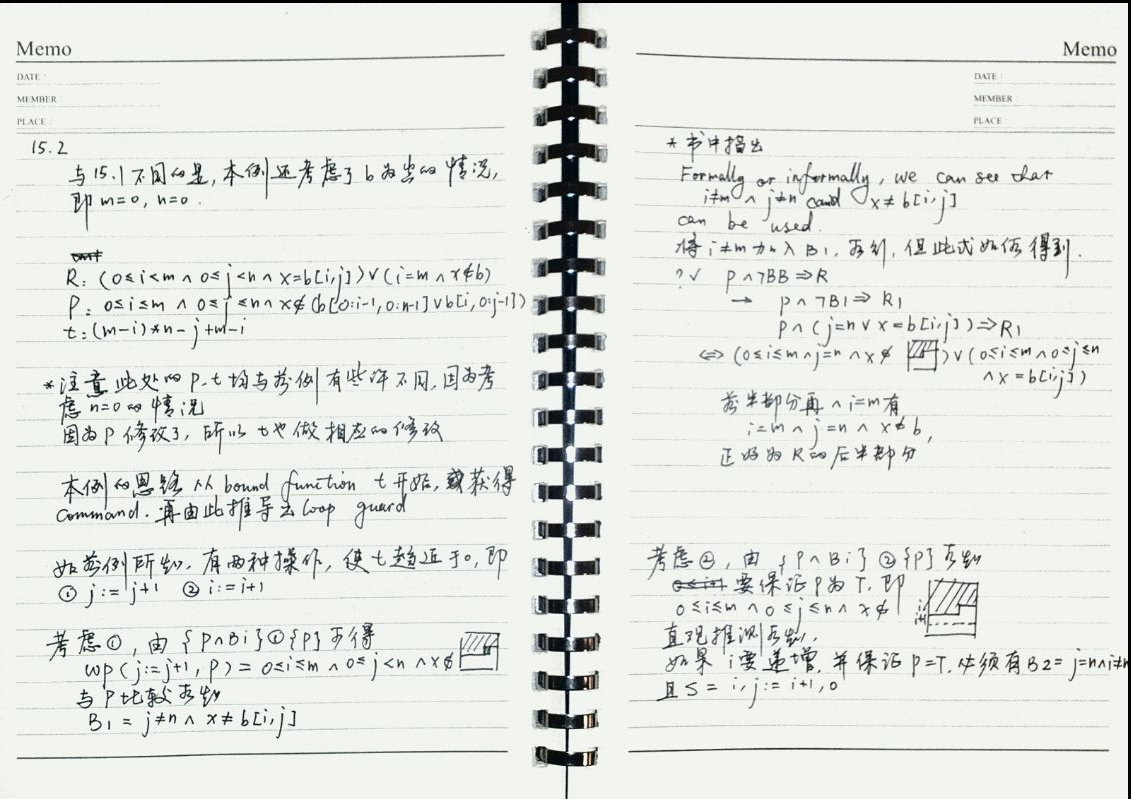 Memo
DATE :
MEMBER
PLACE :
15.2
与15.1不同的是,本例还考虑了b为空的情况,
即 m=0, n=0.
R: (0≤i<m ∧ 0≤j<n ∧ x=b[i,j]) ∨ (i=m ∧ x∉b)
P: 0≤i≤m ∧ 0≤j≤n ∧ x∉(b[0:i-1, 0:n-1] ∨ b[i, 0:j-1])
t: (m-i)*n-j+m-i
*注意此处的P.t均与前例有些许不同,因为考
虑n=0的情况
因为P修改了,所以t也做相应的修改
本例的思路从bound function t开始,获得
command.再由此推导出loop guard
如前例所知,有两种操作,使t趋近于0,即
① j:=j+1 ② i:=i+1
考虑①,由 {P∧Bi}①{P}可得
wp(j:=j+1, P) = 0≤i≤m ∧ 0≤j<n ∧ x∉
与P比较可知
B1 = j≠n ∧ x≠b[i,j]
Memo
DATE :
MEMBER :
PLACE
*书中指出
Formally or informally, we can see that
i≠m ∧ j≠n cand x≠b[i,j]
can be used.
将i≠m加入B1,可行,但此式如何得到.
?√ P∧¬BB⇒R
→ P∧¬B1⇒R1
P∧(j=n ∨ x=b[i,j])⇒R1
⇔ (0≤i≤m∧j=n ∧ x∉ )∨(0≤i≤m∧0≤j≤n
∧ x=b[i,j])
前半部分再∧i=m有
i=m ∧ j=n ∧ x∉b,
正好为R的后半部分
考虑②,由 {P∧Bi}②{P}可知
要保证P为T,即
0≤i≤m ∧ 0≤j≤n ∧ x∉
i
i+1
直观推测可知.
如果i要递增,并保证P=T,必须有B2=j=n∧i≠m
且S = i,j:=i+1,0